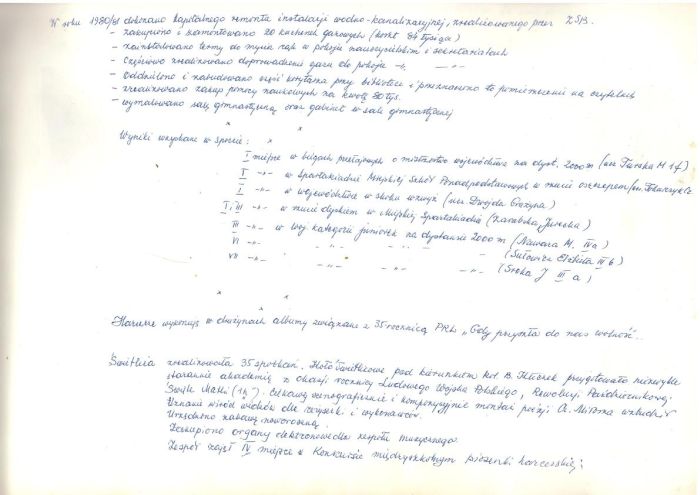 W roku 1980/81 dokonano kapitalnego remontu instalacji wodno-kanalizacyjnej, zrealizowanego przez ZSB.
- zakupiono i zamontowano 20 kuchenek gazowych (koszt 84 tysiące)
- zainstalowano termy do mycia rąk w pokoju nauczycielskim i sekretariatach
- Częściowo zrealizowano doprowadzenie gazu do pokoju -"- -"-
- Oddzielono i zabudowano część korytarza przy bibliotece i przeznaczono to pomieszczenie na czytelnię
- zrealizowano zakup pomocy naukowych na kwotę 80 tys.
- wymalowano salę gimnastyczną oraz gabinet w sali gimnastycznej
x x
Wyniki uzyskane w sporcie:
I miejsce w biegach przełajowych o mistrzostwo województwa na dyst. 2000 m (ucz. Turska M
I -"- w Spartakiadzie Miejskiej Szkół Ponadpodstawowych w rzucie oszczepem (ucz.
I -"- w województwie w skoku wzwyż (ucz. Grażyna)
I, III -"- w rzucie dyskiem w Miejskiej Spartakiadzie (Zarębska, Jurecka)
III -"- w woj. kategorii juniorek na dystansie 2000 m (Nawara M. IVa)
VI -"- -"- -"- -"- -"- (Sułowicz Elżbieta III b)
VII -"- -"- -"- -"- (Sroka J III a)
x x
Harcerze wykonują w drużynach albumy związane z 35 rocznicą PRL "Gdy przyszła do nas wolność"..
Świetlica zrealizowała 35 spotkań. Koło świetlicowe pod kierunkiem kol. B. przygotowało niezwykle
starannie akademię z okazji rocznicy Ludowego Wojska Polskiego, Rewolucji Październikowej,
Święta Matki Ciekawy scenograficznie i kompozycyjnie montaż poezji Cz. Miłosza wzbudził
Uznanie wśród widzów dla reżyserki i wykonawców.
Urządzono zabawę noworoczną.
Zakupiono organy elektronowe dla zespołu muzycznego.
Zespół zajął IV miejsce w Konkursie międzyszkolnym piosenki harcerskiej.